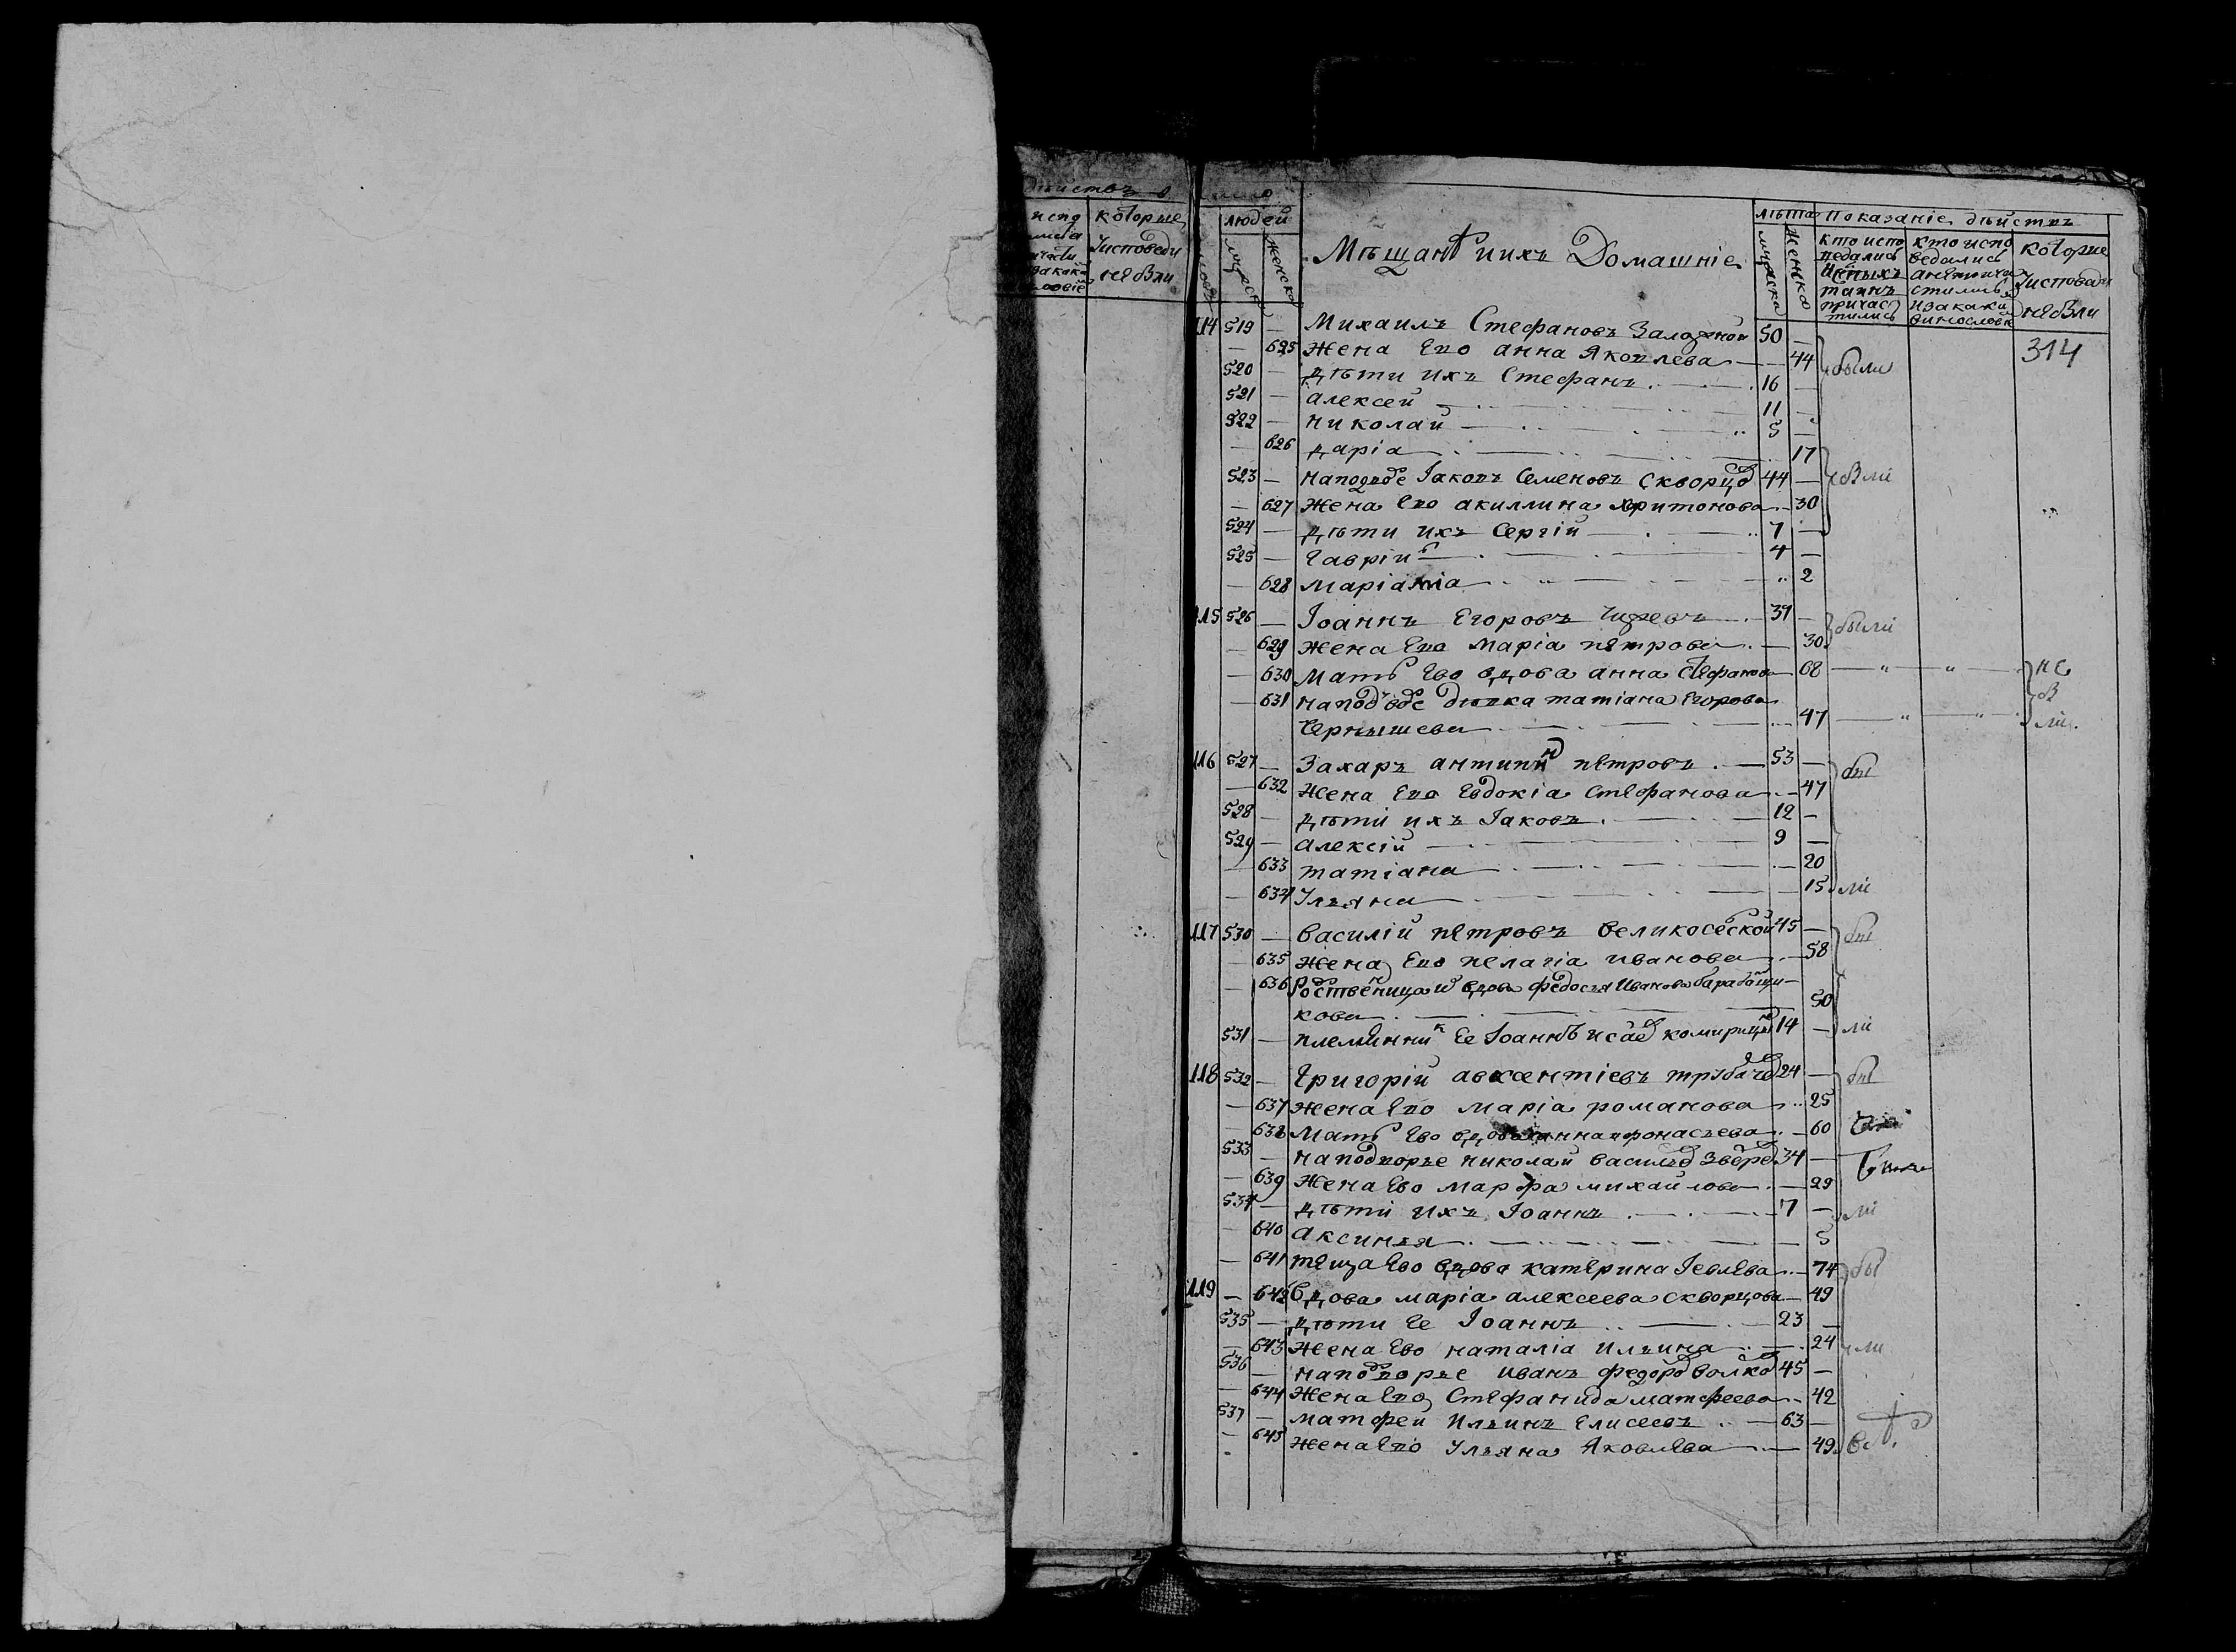 дѣйствъ
которые
Уисповеди
небыли
людей
мужеска
женска
Мѣщанѣ иихъ Домашніе
лѣта
показаніе дѣйствъ
мужеска
женска
кто испо
ведались
и
причас
тились
кто испо
ведались
анеприча
стились
изакаки
винослов
которые
Уисповеди
небыли
314
114 519 — Михаилъ Стефановъ 50 —
— 625 Жена Ево анна Яковлева — 44 были
520 — дѣти ихъ Стефанъ 16 —
521 — алексей 11 —
522 — николай 5 —
— 626 дарія 17
523 — наподводе Іаковъ Семеновъ скворцов 44 —
— 627 Жена Ево акиллина Харитонова 30
524 — дѣти ихъ Сергій 7 —
525 — Гавріил 4 —
— 628 Маріамна 2
115 526 — Іоаннъ Егоровъ 31 — были
— 629 жена Ево Маріа петрова — 30
— 630 мать Ево вдова анна Стефанова 68 не
— 631 девка татіана Егорова бы
Чернышева 47 ли
116 527 — Захаръ антипин петровъ 53 — бы
— 632 Жена Ево Евдокіа Стефанова 47
528 — дѣти ихъ Іаковъ 12 —
529 — Алексій 9 —
— 633 татіана 20
— 634 Ульяна 15 ли
117 530 — василій петровъ великосеской 45 — бы
— 635 жена Ево пелагіа иванова 58
— 636 Родственица и вдова федосья Иванова барабанщи-
кова 50
531 — племянник Ее Іоаннъ исаев 14 — ли
118 532 — Григорій авксентіевъ трубачев 24 — бы
— 637 жена Ево маріа романова 25
— 638 Мать Ево вдова анна афонасьева 60
533 — наподворье николай васильев Зверев 34 —
— 639 Жена Ево марфа михайлова 29
534 — дѣти ихъ Іоаннъ 7 — ли
— 640 Аксинья 5
— 641 теща Ево вдова катерина Іевлева 74 бы
119 — 642 Вдова маріа алексеева скворцова 49
535 — дѣти Ее Іоаннъ 23 —
— 643 жена Ево наталіа ильина 24 ли
536 — наподворье иванъ федоров волков 45 —
— 644 жена Ево Стефанида матфеева 42
537 — матфей Ильинъ Елисеевъ 63 —
— 645 жена Ево Ульяна Яковлева 49